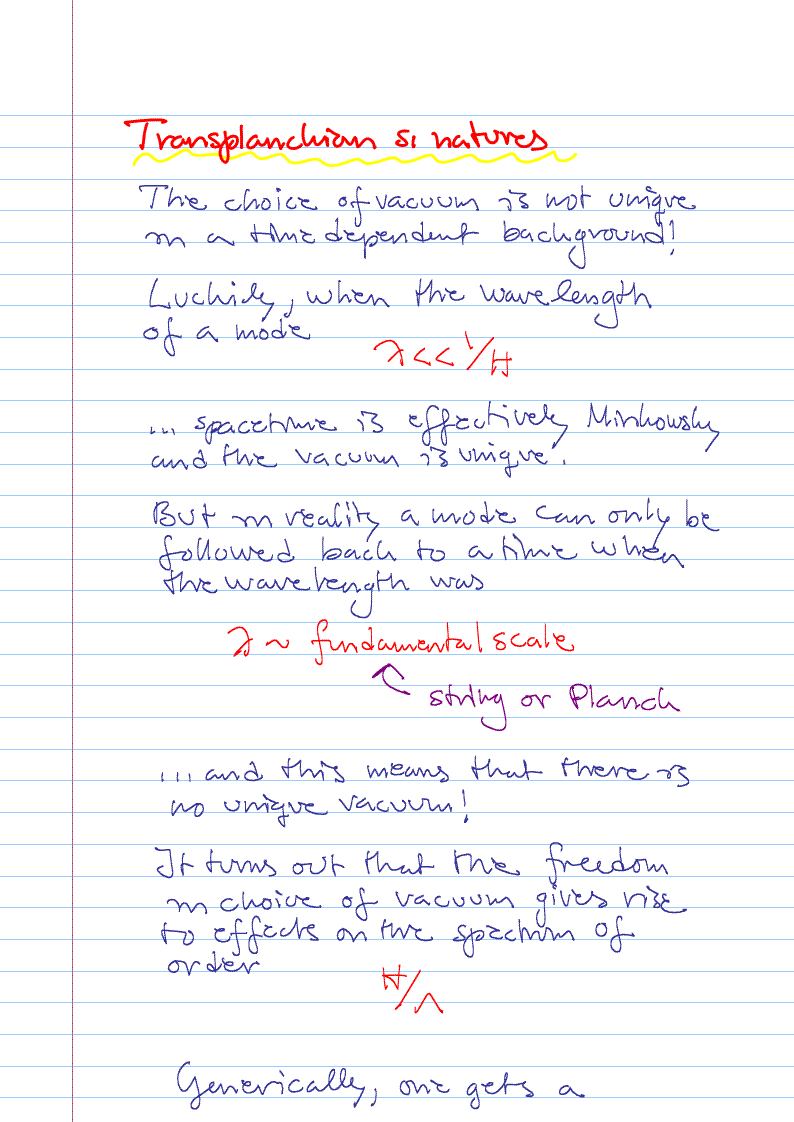 Transplanckian si natures
The choice of vacuum is not unique
in a time dependent background!
Luckily, when the wavelength
of a mode
λ << 1/H
... spacetime is effectively Minkowsky
and the vacuum is unique.
But in reality a mode can only be
followed back to a time when
the wavelength was
λ ~ fundamental scale
string or Planck
... and this means that there is
no unique vacuum!
It turns out that the freedom
in choice of vacuum gives rise
to effects on the spectrum of
order
H/Λ
Generically, one gets a